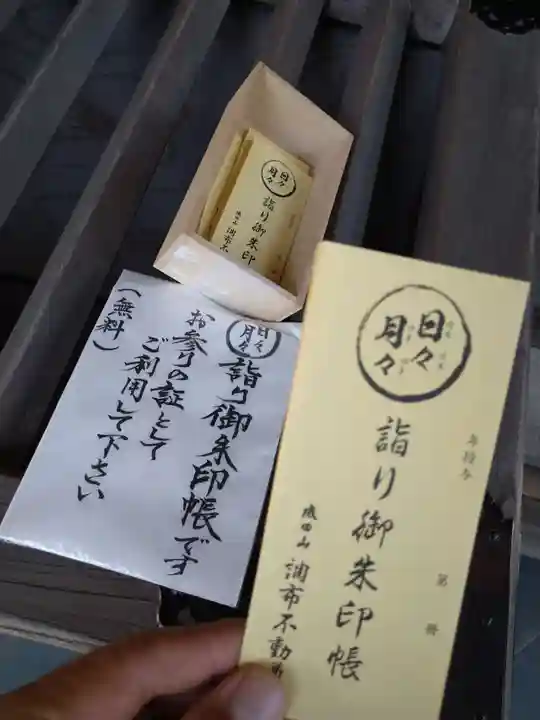 日々
月々
詣り御朱印
調布不
日々
月々
詣り御朱印帳です
お参りの証として
ご利用して下さい
(無料)
日々
月々
詣り御朱印帳
第 冊
調布不動